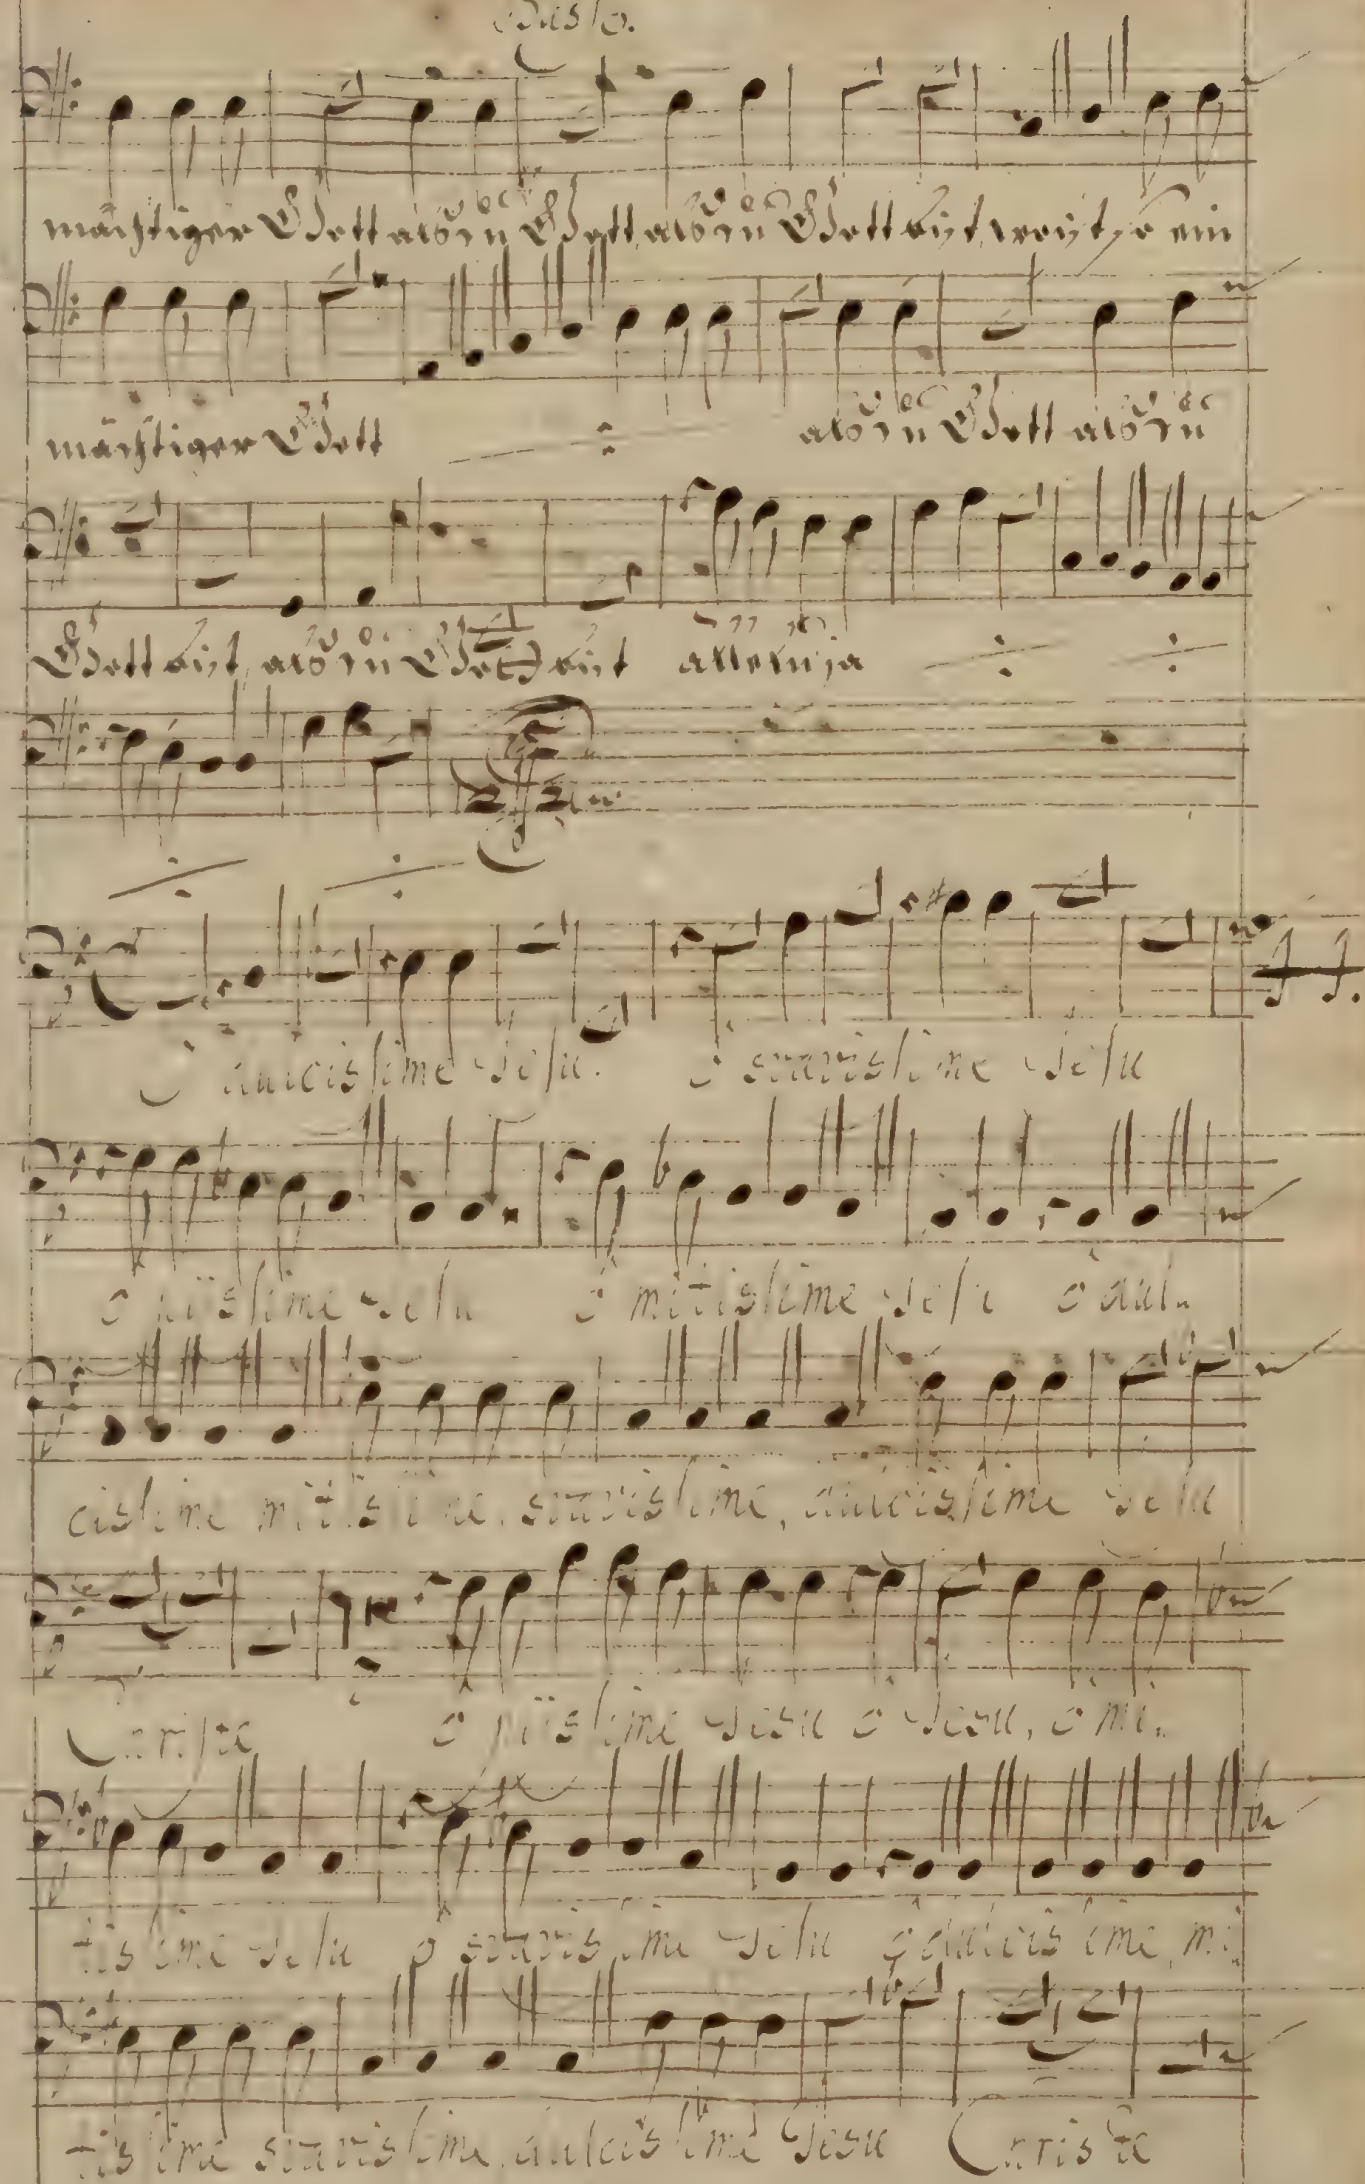 Basso.
mächtiger Gott als du Gott als du Gott bist weist ein
mächtiger Gott als du Gott als du
Gott bist, als du Gott bist alleluja
O dulcissime Jesu. O suavissime Jesu
o piissime Jesu o mitissime Jesu o dul-
cissime mitissime suavissime, dulcissime Jesu
Christe o piissime Jesu o Jesu, o mi-
tissime Jesu o suavissime Jesu o dulcissime, mi-
tissime suavissime, dulcissime Jesu Christe